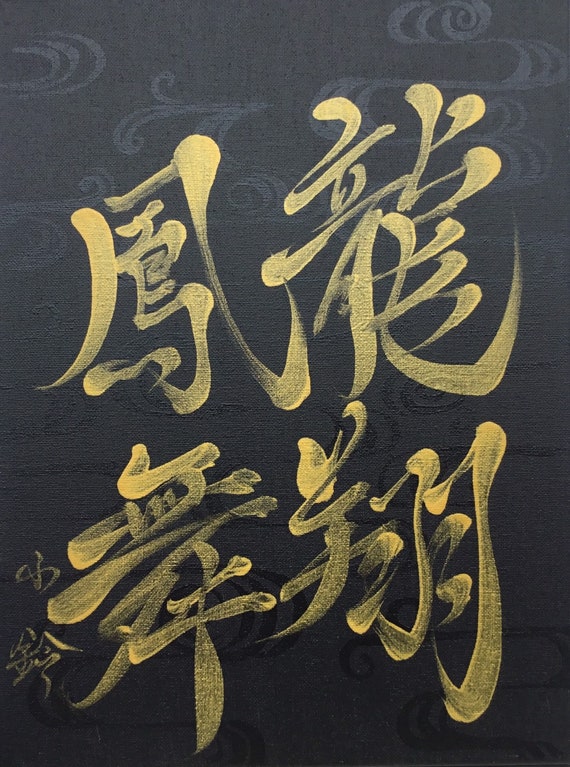 龍翔
鳳舞
小鈴